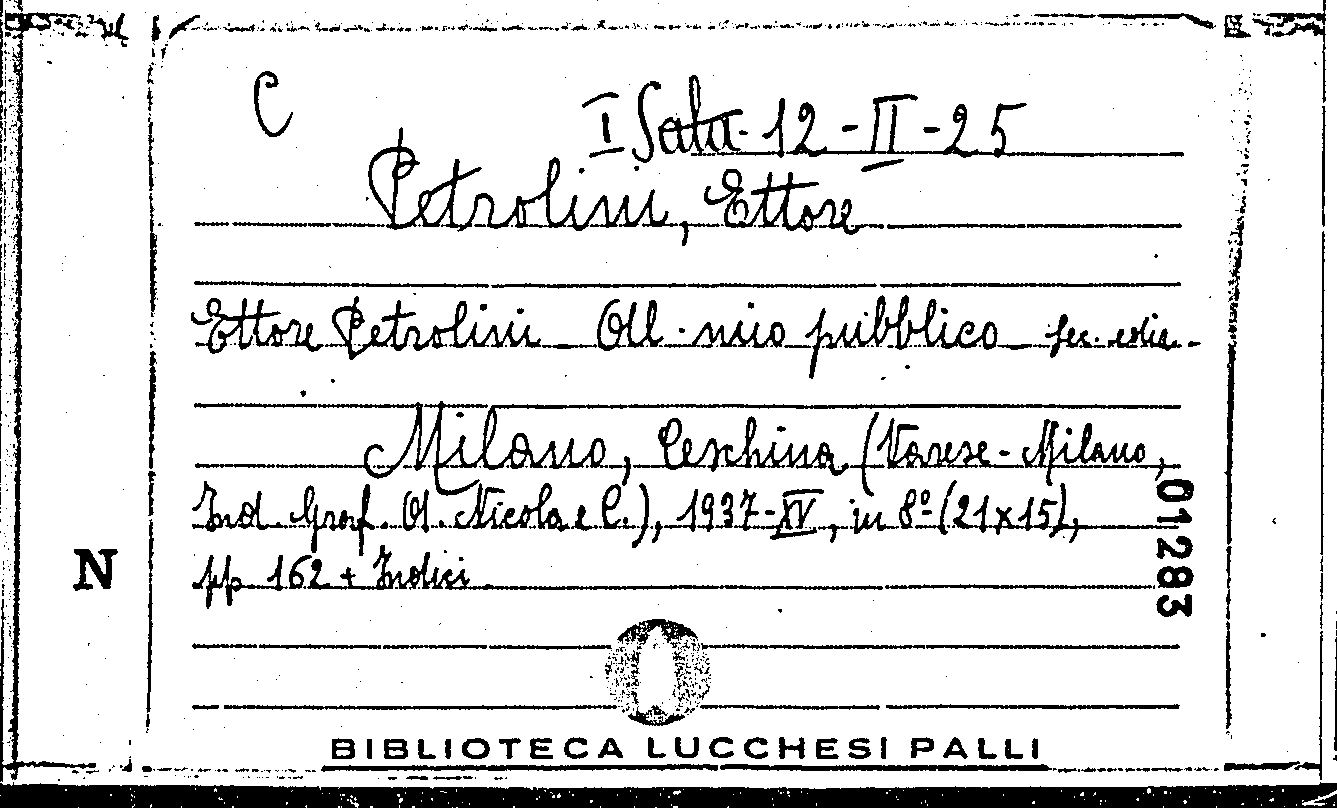 C
I Sala - 12 - II - 25
Petrolini, Ettore
Ettore Petrolini - Al mio pubblico - sec. ediz. -
Milano, Ceschina (Varese - Milano,
Ind. Graf. A. Nicola e C.), 1937-XV, in 8º (21x15),
pp 162 + Indici
01283
N
BIBLIOTECA LUCCHESI PALLI